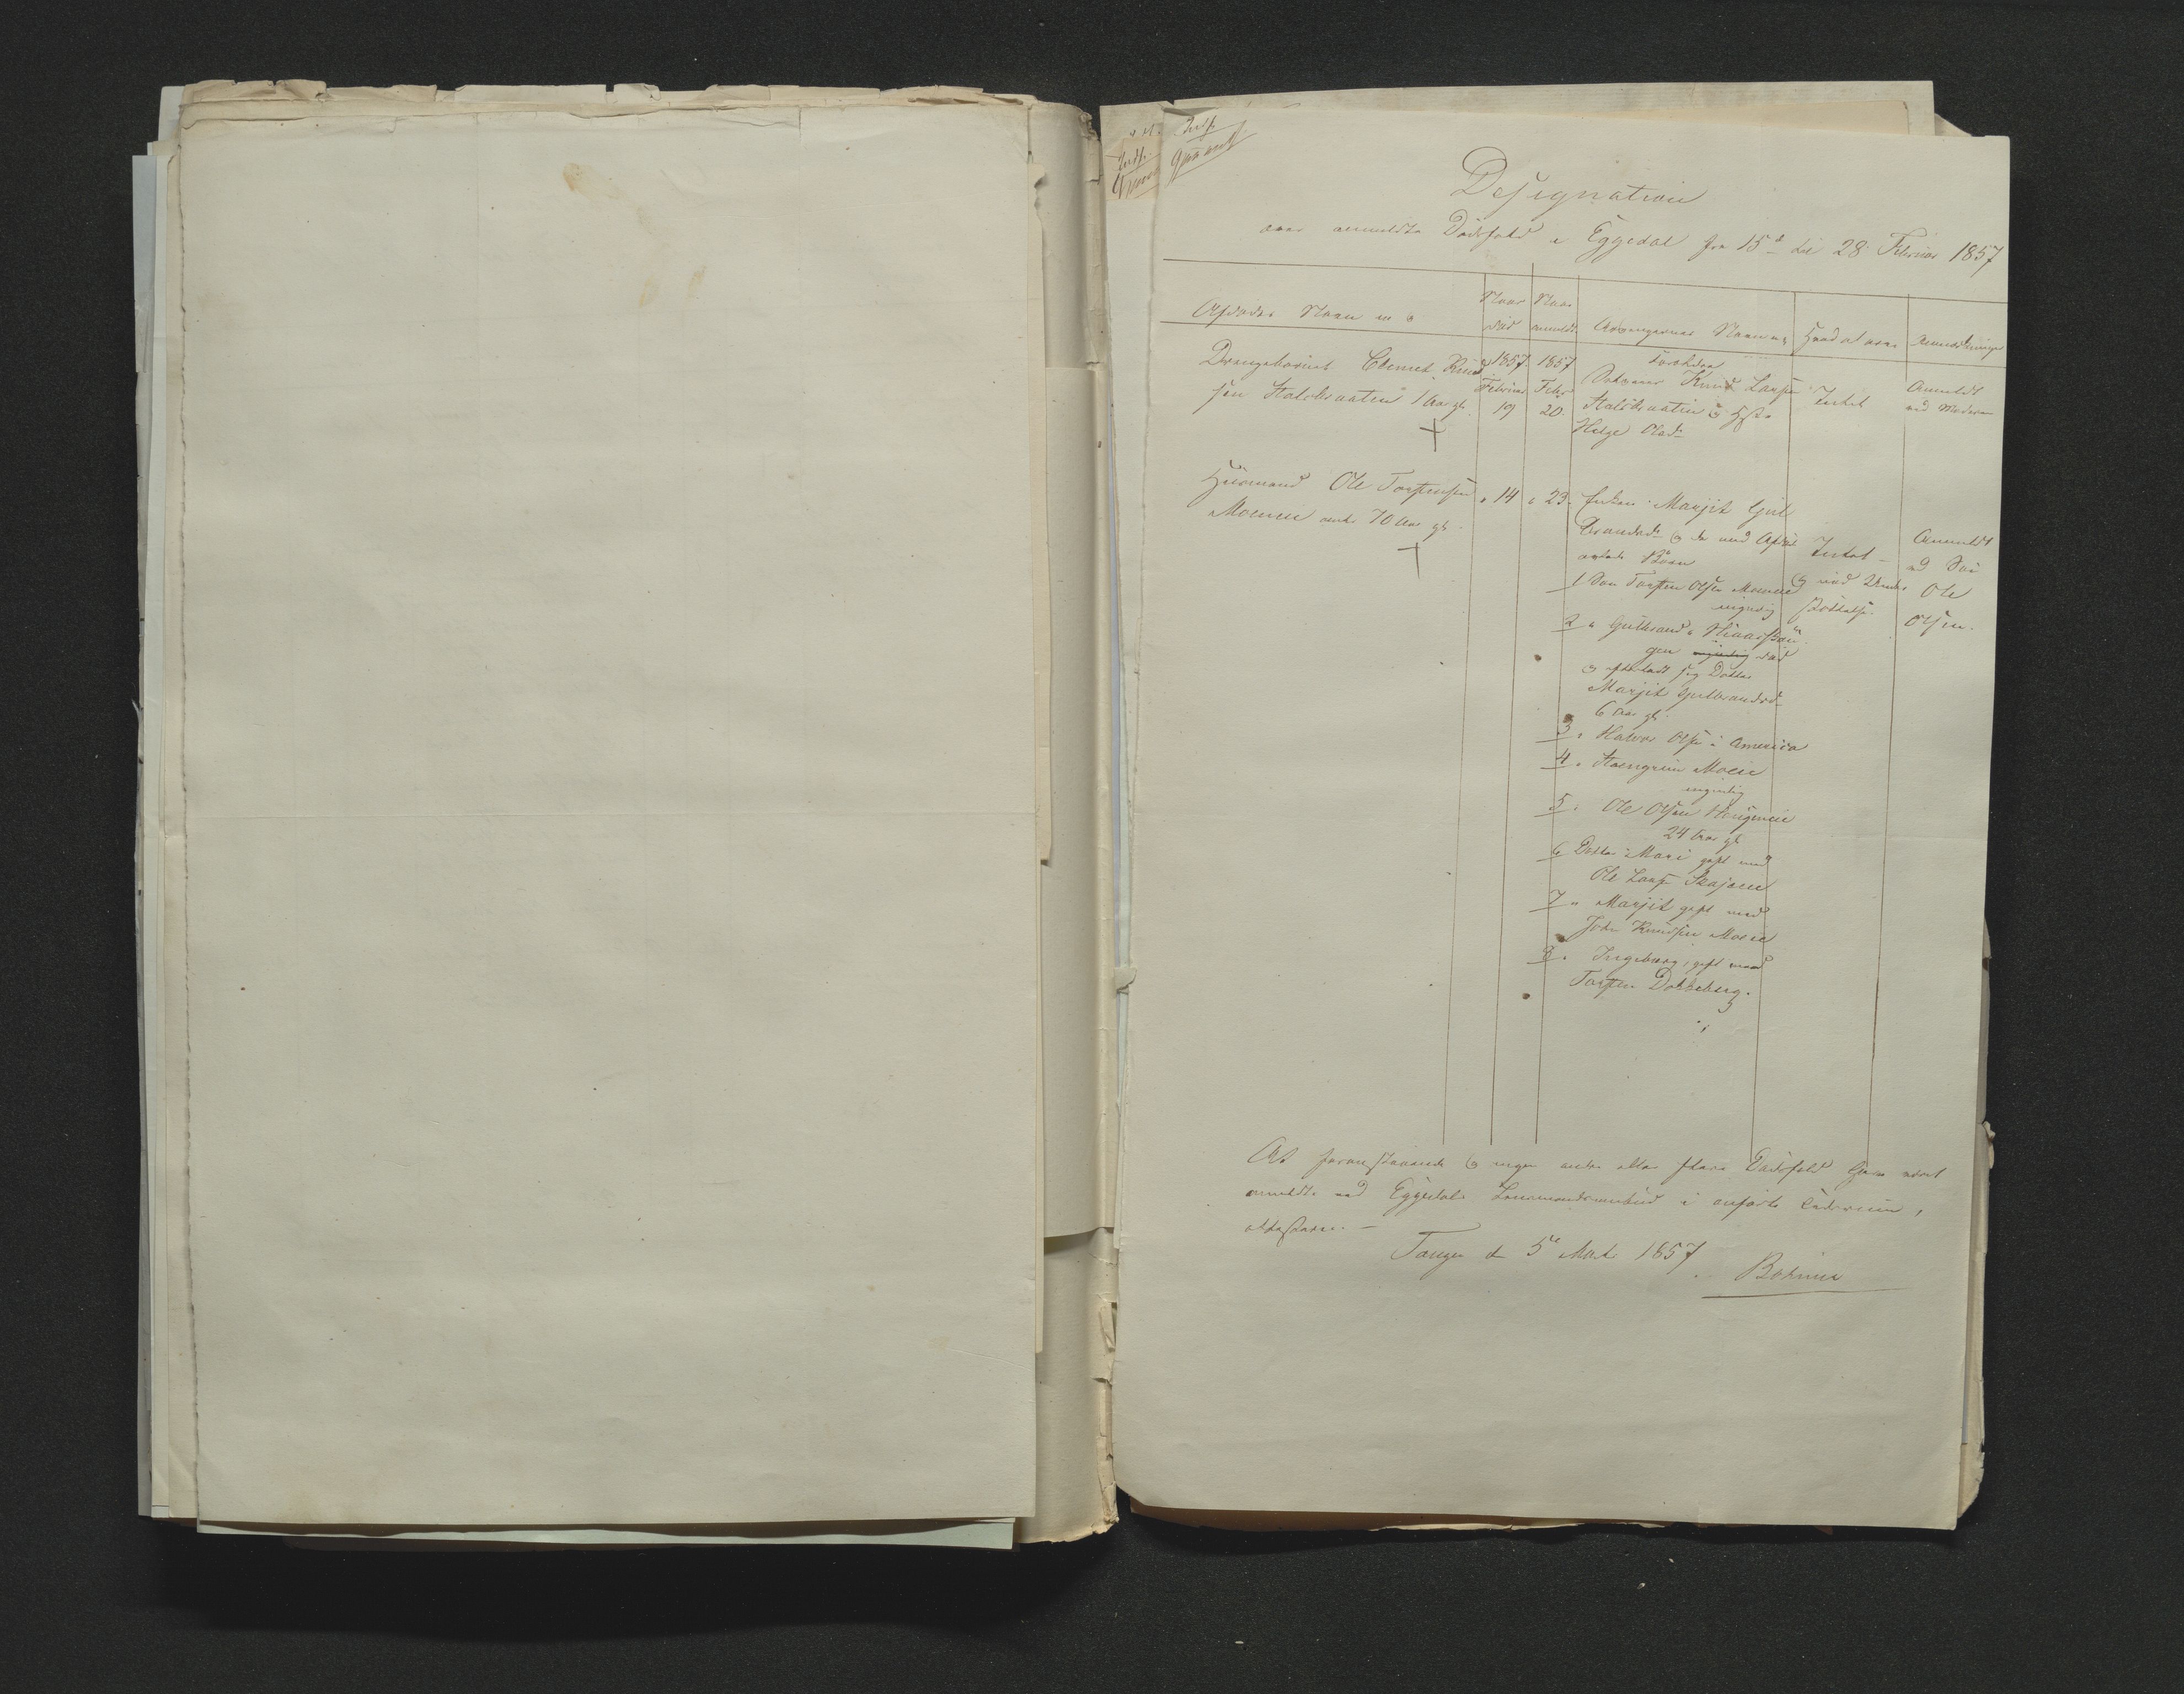 Designation
over anmeldte Dødsfald i Eggedal fra 15de til 28 Februar 1857
Afdødes Navn m. v.
Naar død
Naar anmeldt
Arvingernes Navne
Hvad at arve
Anmærkninger
Drengebarnet Clemet Knud
sen 1 Aar gl.
1857 Februar 19
1857 Febr 20
Forældre
Knud Larsen
og Hustru
Helge Olsd.
Intet
Anmeldt
ved Moderen
Huusmand Ole Torstensen
Moeneie 70 Aar gl.
" 14
" 23
Enken Marjit Gul
brandsd. og de med Afdøde
avlede Børn
1 Søn Torsten Olsen Moeneie
myndig
2 " Gulbrand
gen myndig død
og efterladt sig Datter
Marjit Gulbrandsd.
6 Aar gl.
3 " Halvor Olsen i America
4 " Steengrim Moeie
myndig
5 " Ole Olsen
24 Aar gl.
6 Datter Mari gift med
Ole Larsen
7 " Marjit gift med
John Knudsen Moeie
8 " Ingeborg, gift med
Torsten Dokkeberg.
Intet
og nød Under
støttelse.
Anmeldt
ved Søn
Ole
Olsen.
At foranstaaende og ingen andre eller flere Dødsfald have været
anmeldte ved Eggedals Lensmandsombud i anførte Tidsrum,
attesteres. —
Tangen d 5te Marts 1857